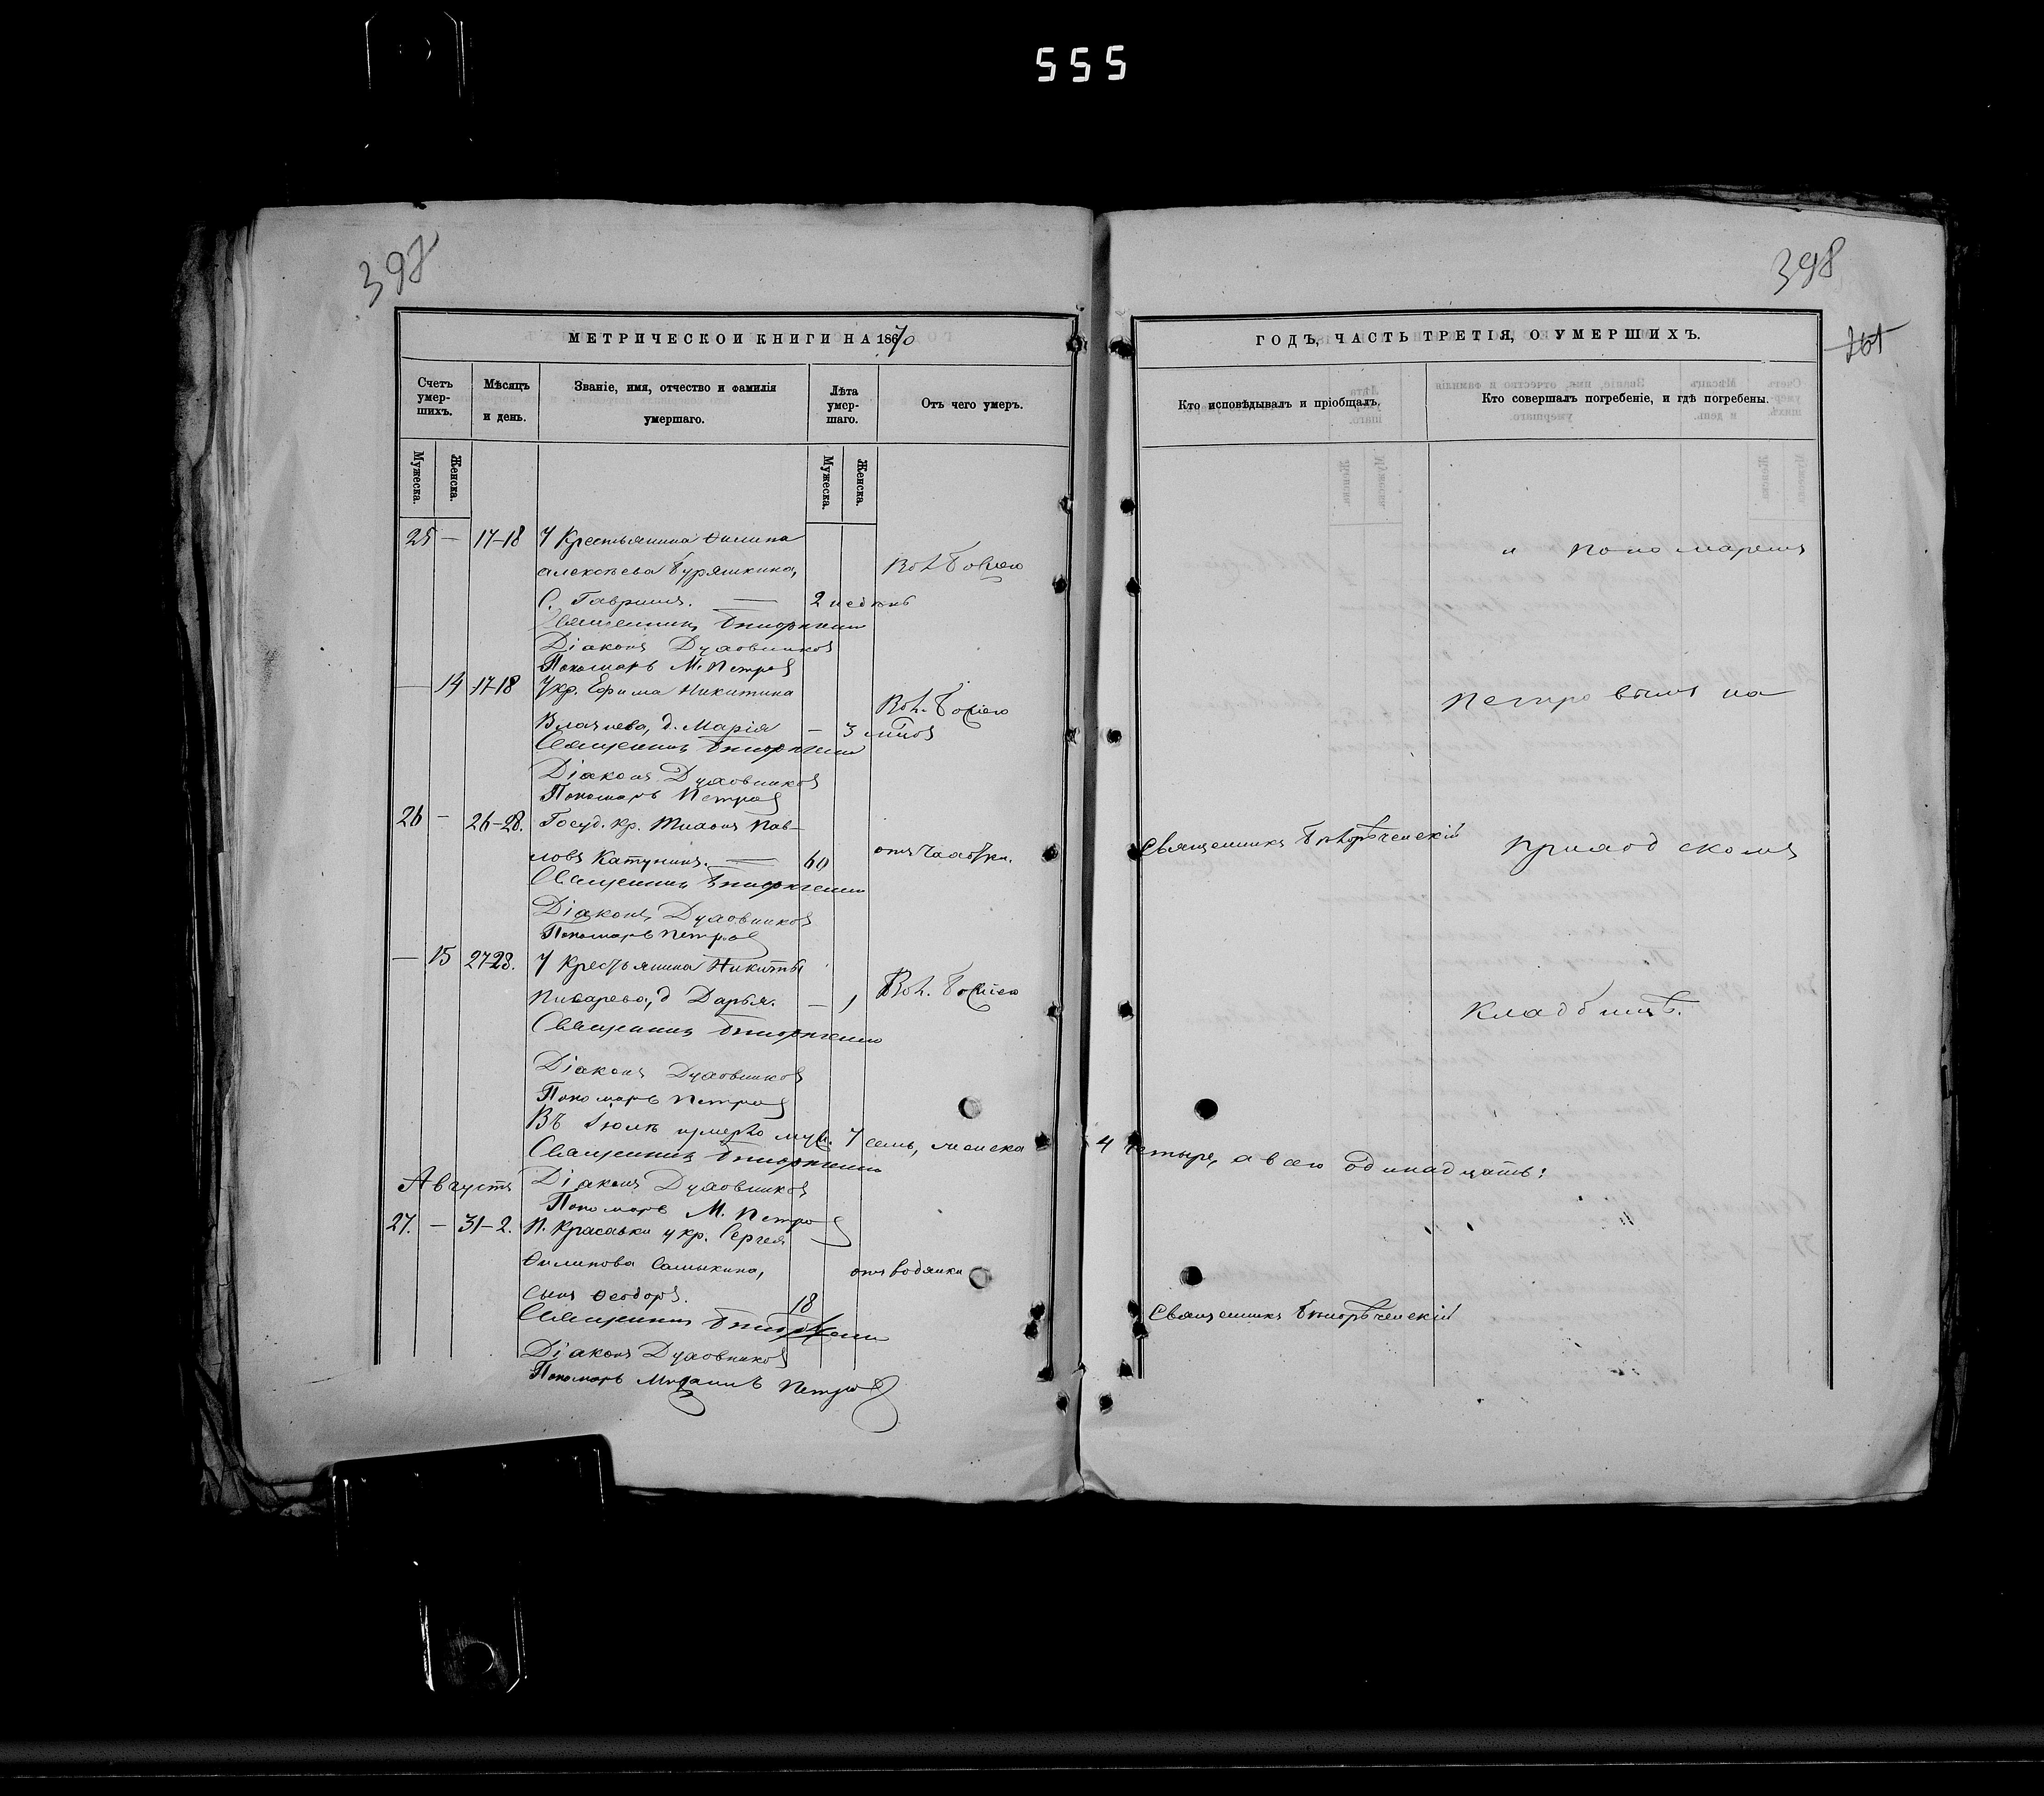 555
398
398
261
МЕТРИЧЕСКОЙ КНИГИ НА 1870
ГОДЪ, ЧАСТЬ ТРЕТІЯ, О УМЕРШИХЪ.
Счетъ умершихъ.
Мѣсяцъ и день.
Званіе, имя, отчество и фамилія умершаго.
Лѣта умершаго.
Отъ чего умеръ.
Кто исповѣдывалъ и пріобщалъ.
Кто совершалъ погребеніе, и гдѣ погребены.
Мужеска.
Женска.
Мужеска.
Женска.
25 — 17-18 У Крестьянина Филипа
Алексѣева Буряшкина,
С. Гавриилъ. — 2 недѣль
Священникъ
Діаконъ Духовниковъ
Пономарь М. Петровъ
и пономаремъ
— 14 17-18 У кр. Ефима Никитина
д. Марія — 3 лѣтъ
Священникъ
Діаконъ Духовниковъ
Пономарь Петровъ
Петровымъ на
26 — 26-28. Госуд. кр. Тихонъ Пав-
ловъ Катунинъ. — 60 отъ чахотки.
Священникъ
Діаконъ Духовниковъ
Пономарь Петровъ
Священникъ
приходскомъ
— 15 27-28. У Крестьянина Никиты
Писарева, д Дарья. — 1
Священникъ
Діаконъ Духовниковъ
Пономарь Петровъ
кладбищѣ.
Въ Іюлѣ умерло муж. 7 семь, женска 4 четыре, а всего одинадцать:
Священникъ
Августъ
Діаконъ Духовниковъ
Пономарь М. Петровъ
27. — 31-2. П. Красавки у кр. Сергея
Филипова Самыкина, отъ водянки
сынъ Феодоръ. 18
Священникъ
Діаконъ Духовниковъ
Пономарь Михаилъ Петровъ
Священникъ